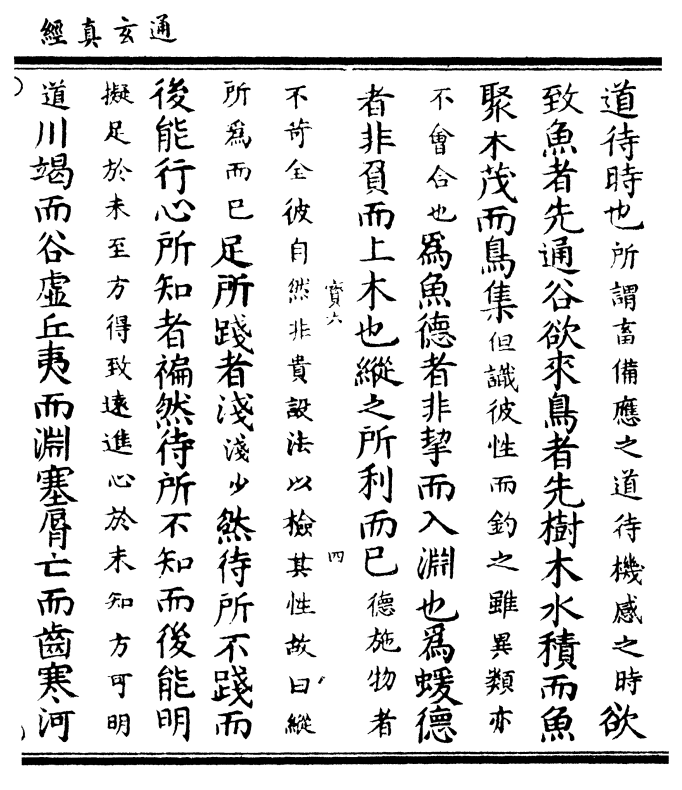 通玄真經
道待時也所謂畜備應之道待機感之時欲
致魚者先通谷欲來鳥者先樹木水積而魚
聚木茂而鳥集但識彼性而釣之雖異類亦
不會合也為魚德者非挈而入淵也為蝯德
者非負而上木也縱之所利而已德施物者
寶六
四
不苛全彼自然非貴設法以檢其性故曰縱
所為而已足所踐者淺淺少然待所不踐而
後能行心所知者褊然待所不知而後能明
擬足於未至方得致遠進心於未知方可明
道川竭而谷虛丘夷而淵塞脣亡而齒寒河